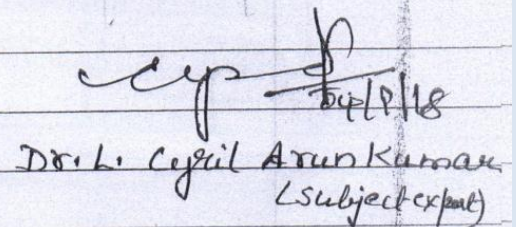 Dr. L. Cyril Arun Kumar
(Subject expert)